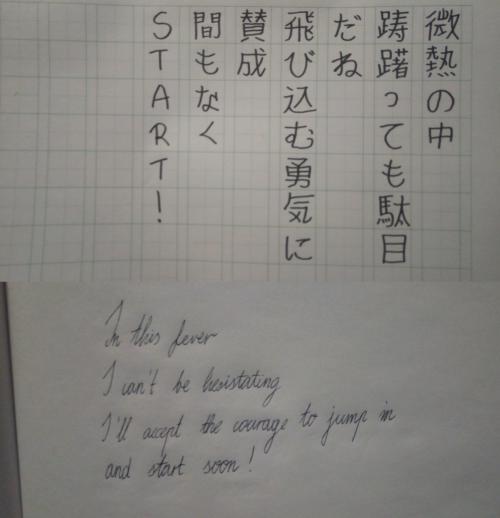 微熱の中
躊躇っても駄目
だね
飛び込む勇気に
賛成
間もなく
START!
In this fever
I can't be hesistating
I'll accept the courage to jump in
and start soon!